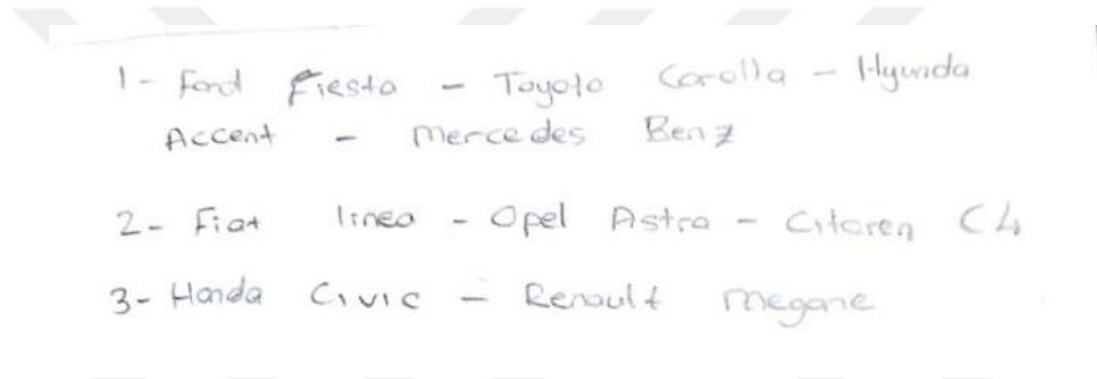 1- Ford Fiesta - Toyoto Corolla - Hyunda
Accent - Mercedes Benz
2- Fiat linea - Opel Astra - Citoren C4
3- Honda Civic - Renault megane